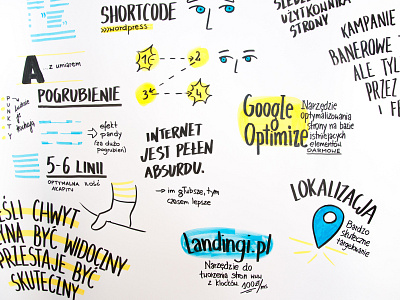 SHORTCODE
>>>wordpress
UŻYTKOWNIKA
STRONY
KAMPANIE
BANEROWE
ALE TYL
PRZEZ
A
z umiarem
POGRUBIENIE
PUNKTY
efekt
pandy
(za dużo
pogrubień)
5-6 LINII
OPTYMALNA ILOŚĆ
AKAPITU
1
2
3
4
INTERNET
JEST PEŁEN
ABSURDU.
im głubsze, tym
czasem lepsze
Google
Optimize
Narzędzie
optymalizowania
strony na bazie
istniejących
elementów
DARMOWE
LOKALIZACJA
Bardzo
skuteczne
targetowanie
ŚLI CHWYT
NA BYĆ WIDOCZNY
PRZESTAJE BYĆ
SKUTECZNY
Landingi.pl
Narzędzie do
tworzenia stron www
z klocków